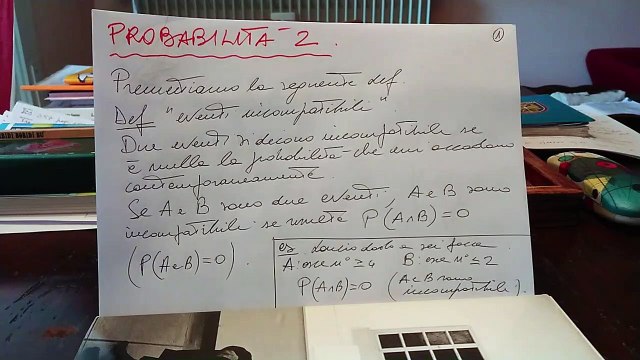 PROBABILITÀ - 2.
①
Premettiamo la seguente def.
Def "eventi incompatibili".
Due eventi si dicono incompatibili se
è nulla la probabilità che essi accadano
contemporaneamente.
Se A e B sono due eventi, A e B sono
incompatibili se risulta P(A∩B)=0
(P(A e B)=0).
es. lancio dado a sei facce
A: esce n° ≥ 4 B: esce n° ≤ 2
P(A∩B)=0 (A e B sono
incompatibili).